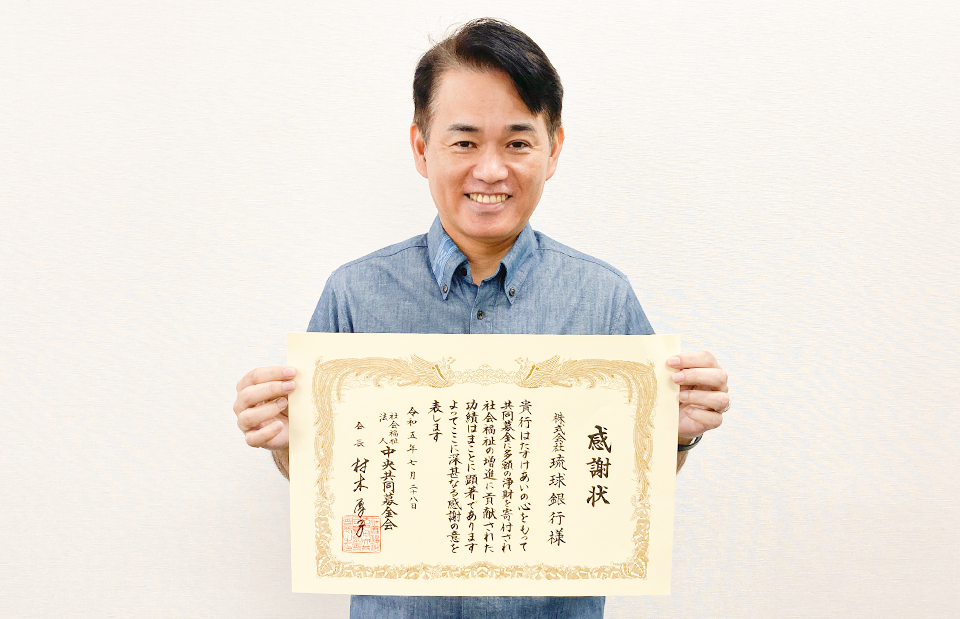 感謝状
株式会社 琉球銀行様
貴行はたすけあいの心をもって
共同募金に多額の浄財を寄付され
社会福祉の増進に貢献された
功績はまことに顕著であります
よってここに深甚なる感謝の意を
表します
令和五年七月二十八日
社会福祉法人 中央共同募金会
会長 村木厚子